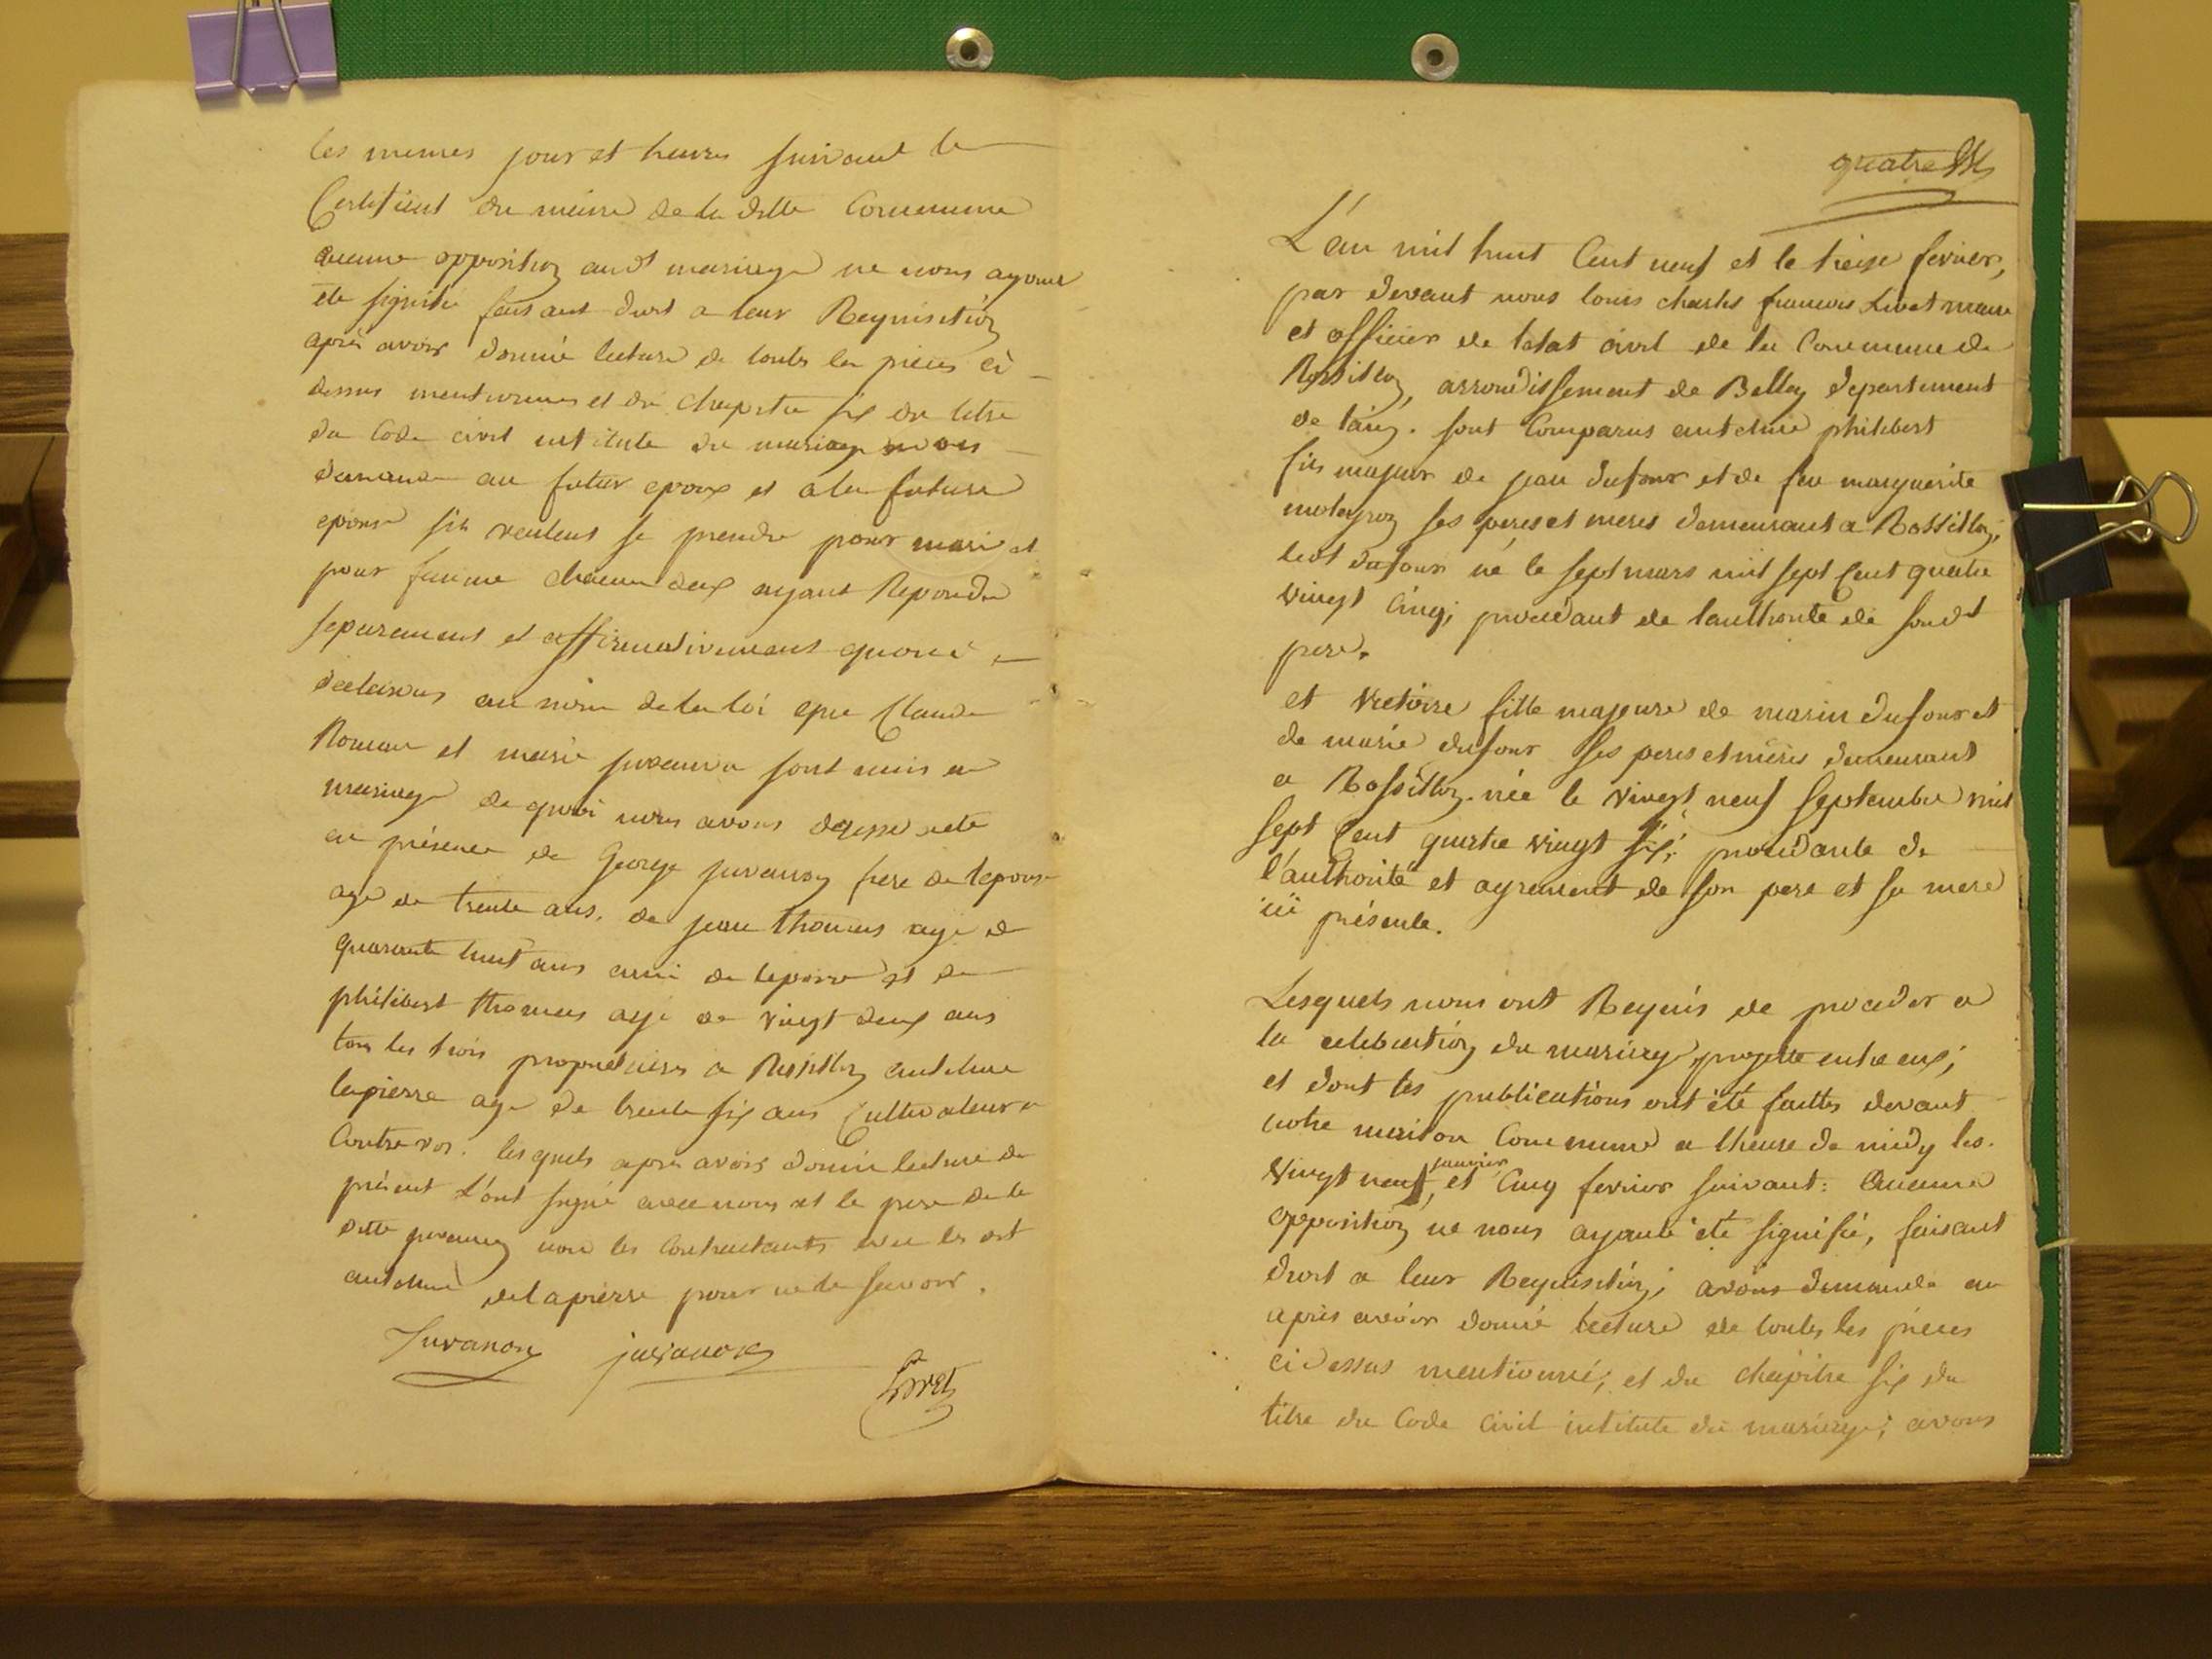 les memes jour et heures suivant le
Certificat du maire de la ditte Commune
aucune opposition audt mariage ne nous ayant
été signifié faisant droit a leur Requisition
après avoir donné lecture de touts les pieces ci
dessus mentionnées et du chapitre six du titre
du Code civil intitulé du mariage avons
demandé au futur epoux et a la future
epouse s'ils veulent se prendre pour mari et
pour femme chacun deux ayant Repondu
separement et affirmativement
declarons au nom de la loi que Claude
Roman et marie juvanon sont unis en
mariage de quoi nous avons dressé acte
en présence de George juvanon frere de lepouse
agé de trente ans, de jean thomas agé de
quarante huit ans ami de lepoux et de
philibert thomas agé de vingt deux ans
tous les trois propriétaires a Rossillon anthelme
lapierre agé de trente six ans Cultivateur a
Contrevoz. lesquels après avoir donné lecture du
présent l'ont signé avec nous et le pere de la
ditte juvanon non les Contractants avec les
anthelme delapierre pour ne le savoir.
Juvanon juvanon
Livet
quatre
L'an mil huit Cent neuf et le treize fevrier,
par devant nous louis charles francois Livet maire
et officier de letat civil de la Commune de
Rossillon, arrondissement de Belley departement
de l'ain. sont Comparus anthelme philibert
fils majeur de jean dufour et de feu marguerite
moleyron ses peres et meres demeurant a Rossillon;
ledt dufour né le sept mars mil sept Cent quatre
vingt Cinq; procedant de l'authorité de sondt
pere.
et victoire fille majeure de marin dufour et
de marie dufour ses peres et mères demeurant
a Rossillon. née le vingt neuf septembre mil
sept Cent quatre vingt six; procedante de
l'authorité et agrement de son pere et sa mere
ici présente.
Lesquels nous ont Requis de proceder a
la celebration du mariage projetté entre eux;
et dont les publications ont été faittes devant
notre maison Commune a lheure de midy les
vingt neuf janvier, et Cinq fevrier suivant: Aucune
opposition ne nous ayante été signifié, faisant
droit a leur Requisition; avons demandé au
après avoir donné lecture de toutes les pièces
cidessus mentionné; et du chapitre six du
titre du Code Civil intitulé du mariage; avons